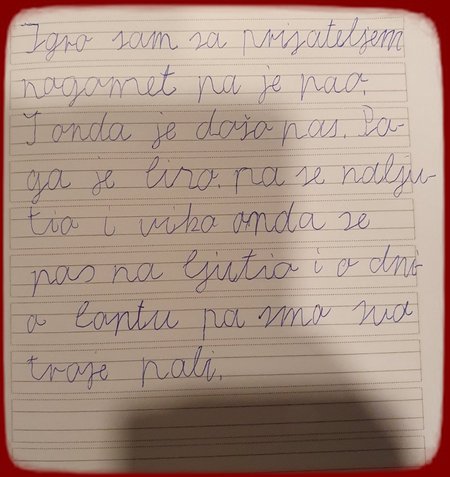 Igro sam sa prijateljem
nogomet pa je pao.
I onda je došo pas. Pa-
ga je lizo. pa se nalju-
tio i viko onda se
pas na ljutio i o dni-
o loptu pa smo sva
troje pali.